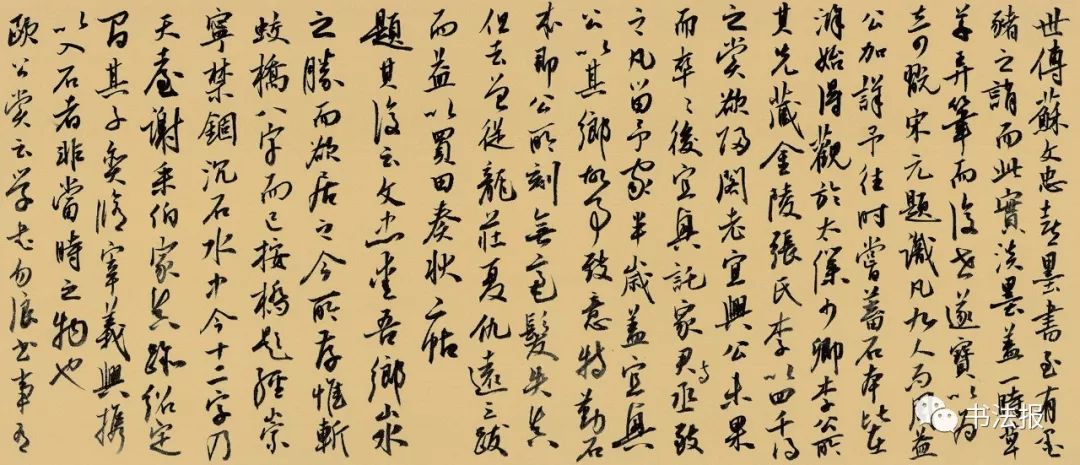 世傳蘇文忠喜墨書至有墨
豬之誚而此實淡墨蓋一時草
草弄筆而後世遂寶以為
奇玩宋元題識凡九人而周益
公加詳予往時嘗蓄石本比在
滁始得觀於太僕少卿李公所
其先藏金陵張氏李以四千得
之嘗欲歸閣老宜興公未果
而卒卒後宜興託家君丞致
之凡留予家半歲蓋宜興
公以其鄉故事致意特勤石
本即公所刻無毫髮失真
但去益從龍莊夏仇遠三跋
而益以買田奏狀二帖
題其後云文忠愛吾鄉山水
之勝而欲居之今所存惟斬
蛟橋八字而已按橋題經崇
寧禁錮沉石水中今十二字乃
天臺謝采伯家真跡紹定
間其子奕修宰義興攜
以入石者非當時之物也
歐公嘗云學者勿浪書事有
书法报